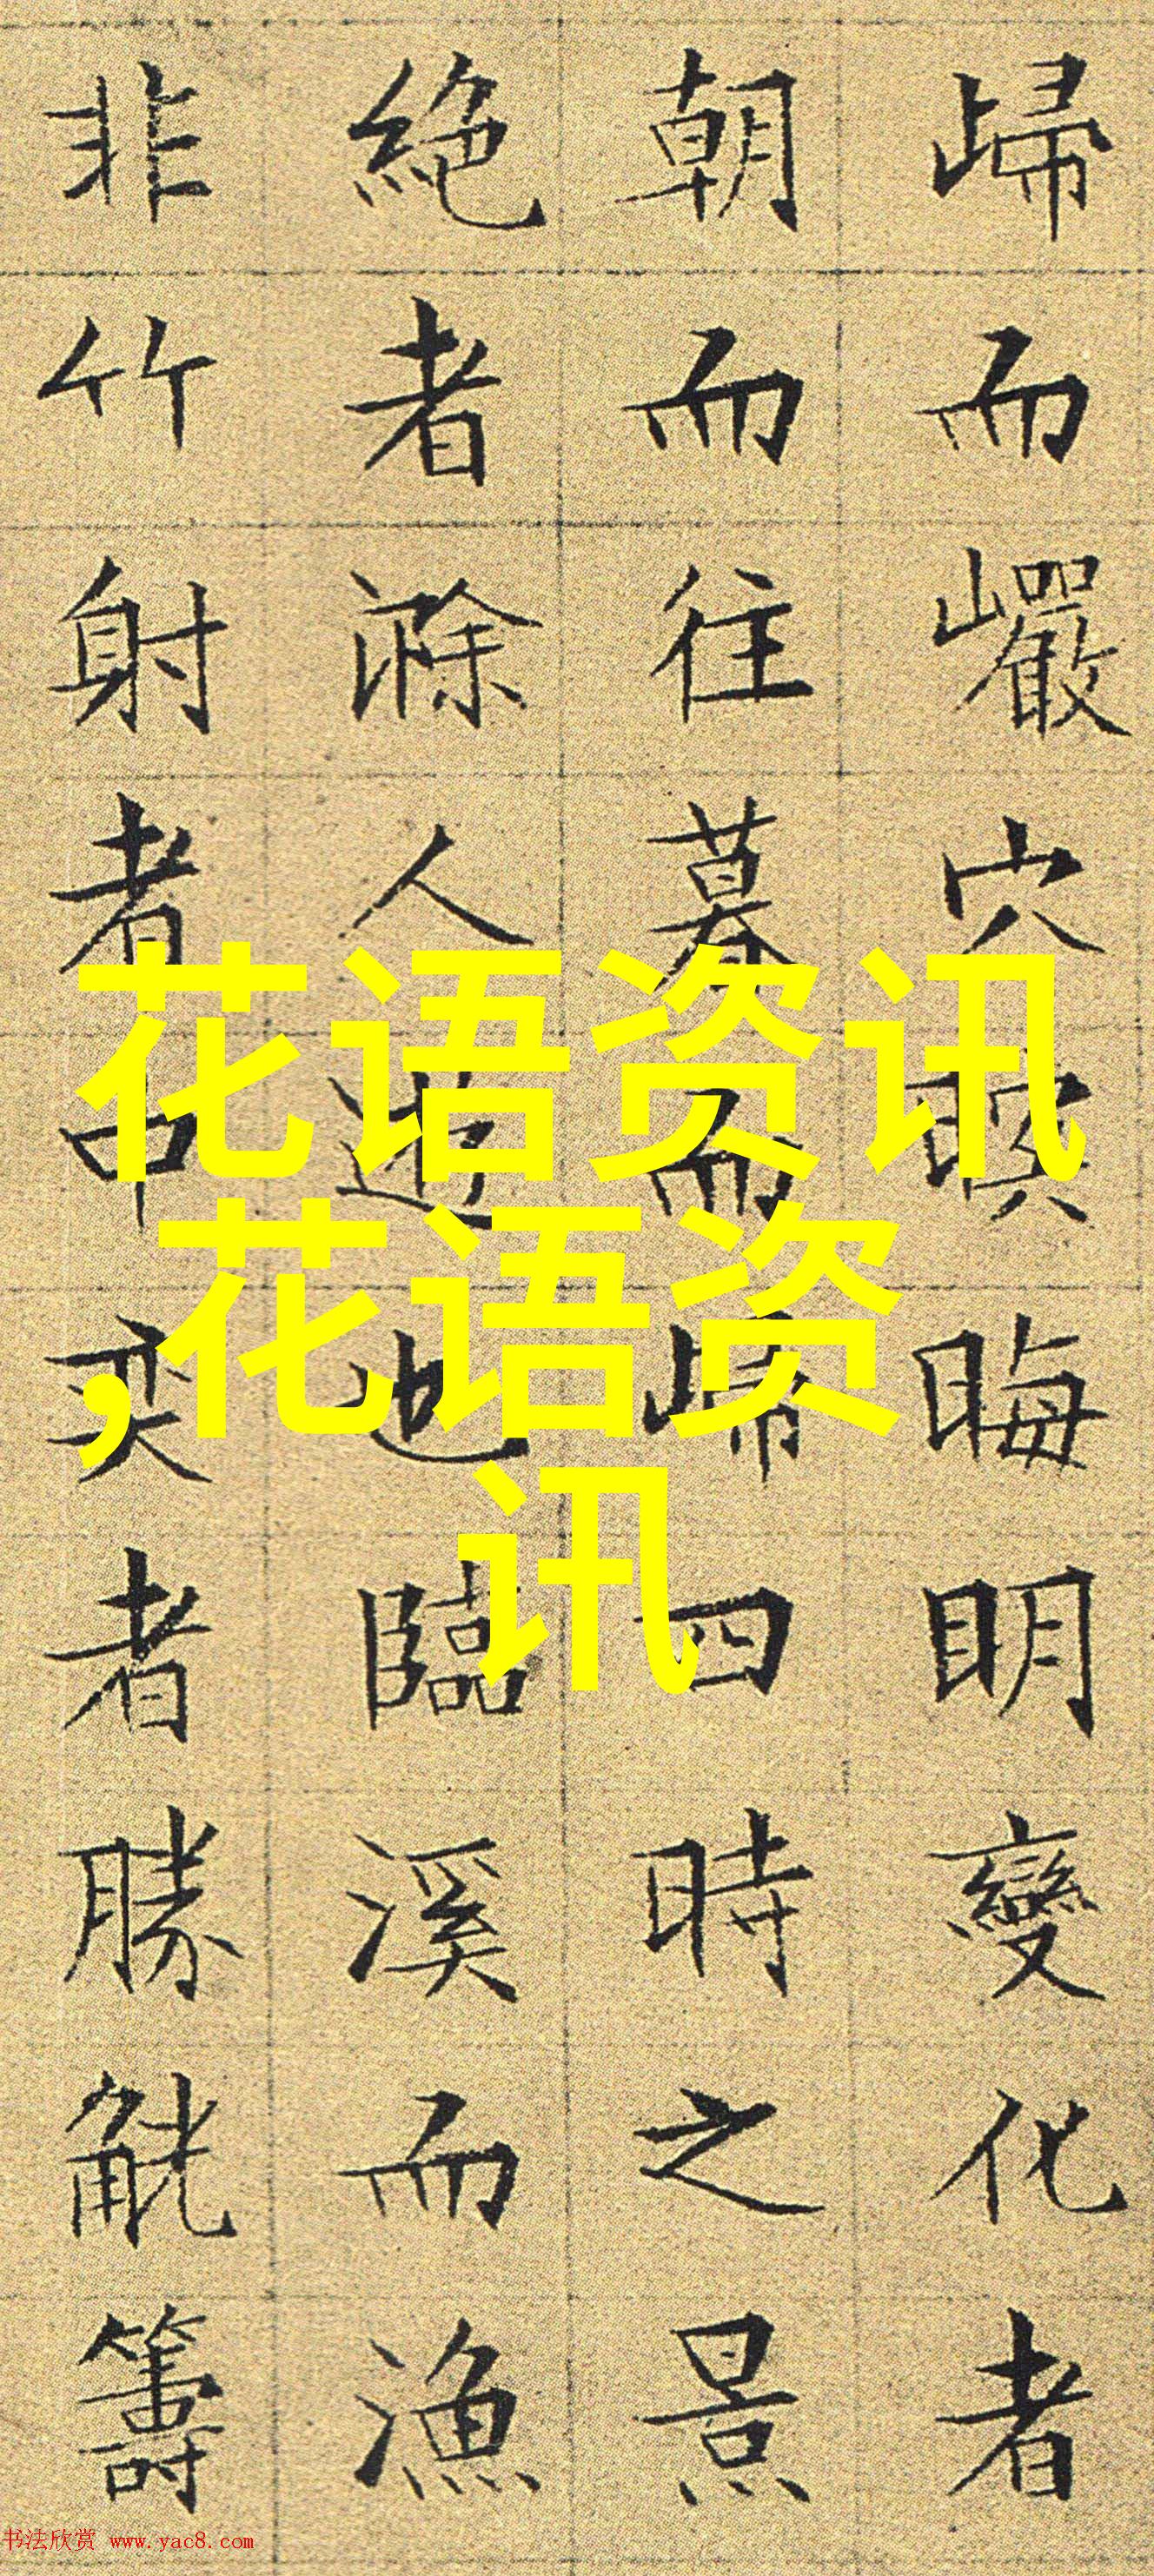 㱕而巗穴暝晦明變化者
朝而往暮而㱕四時之景
絶者滁人遊也臨溪而漁
非竹射者中奕者勝觥籌
花语资讯
,花语资
讯
书法欣赏 www.yac8.com